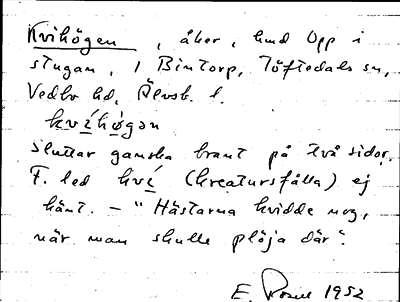 Kvihögen, åker, hmd Opp i
stugan, i Bintorp, Töftedals sn,
Vedbo hd, Älvsb. l.
kvíhøgan
sluttar ganska brant på två sidor.
F. led kví (kreatursfålla) ej
känt. – "Hästarna kvidde nog,
när man skulle plöja där".
E. 1952